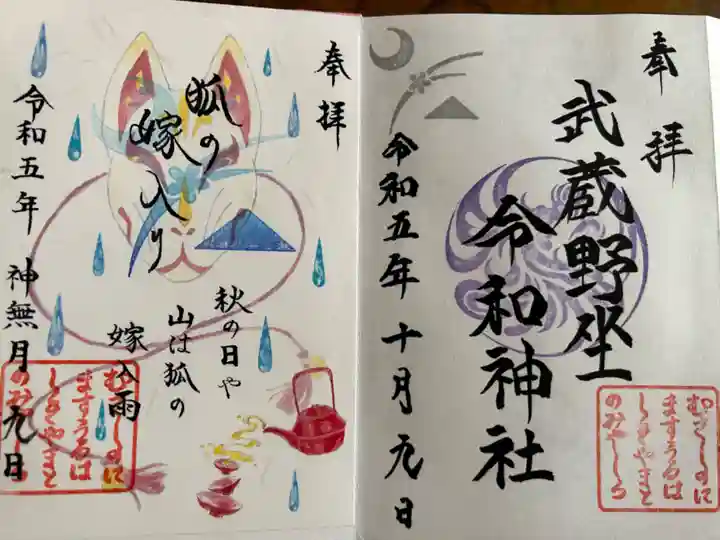 奉拝
武蔵野坐
令和神社
令和五年十月九日
むさしのに
ますうるは
しきやまと
のみやしろ
奉拝
狐の
嫁入り
秋の日や
山は狐の
嫁入雨
令和五年 神無月 九日
むさしのに
ますうるは
しきやまと
のみやしろ